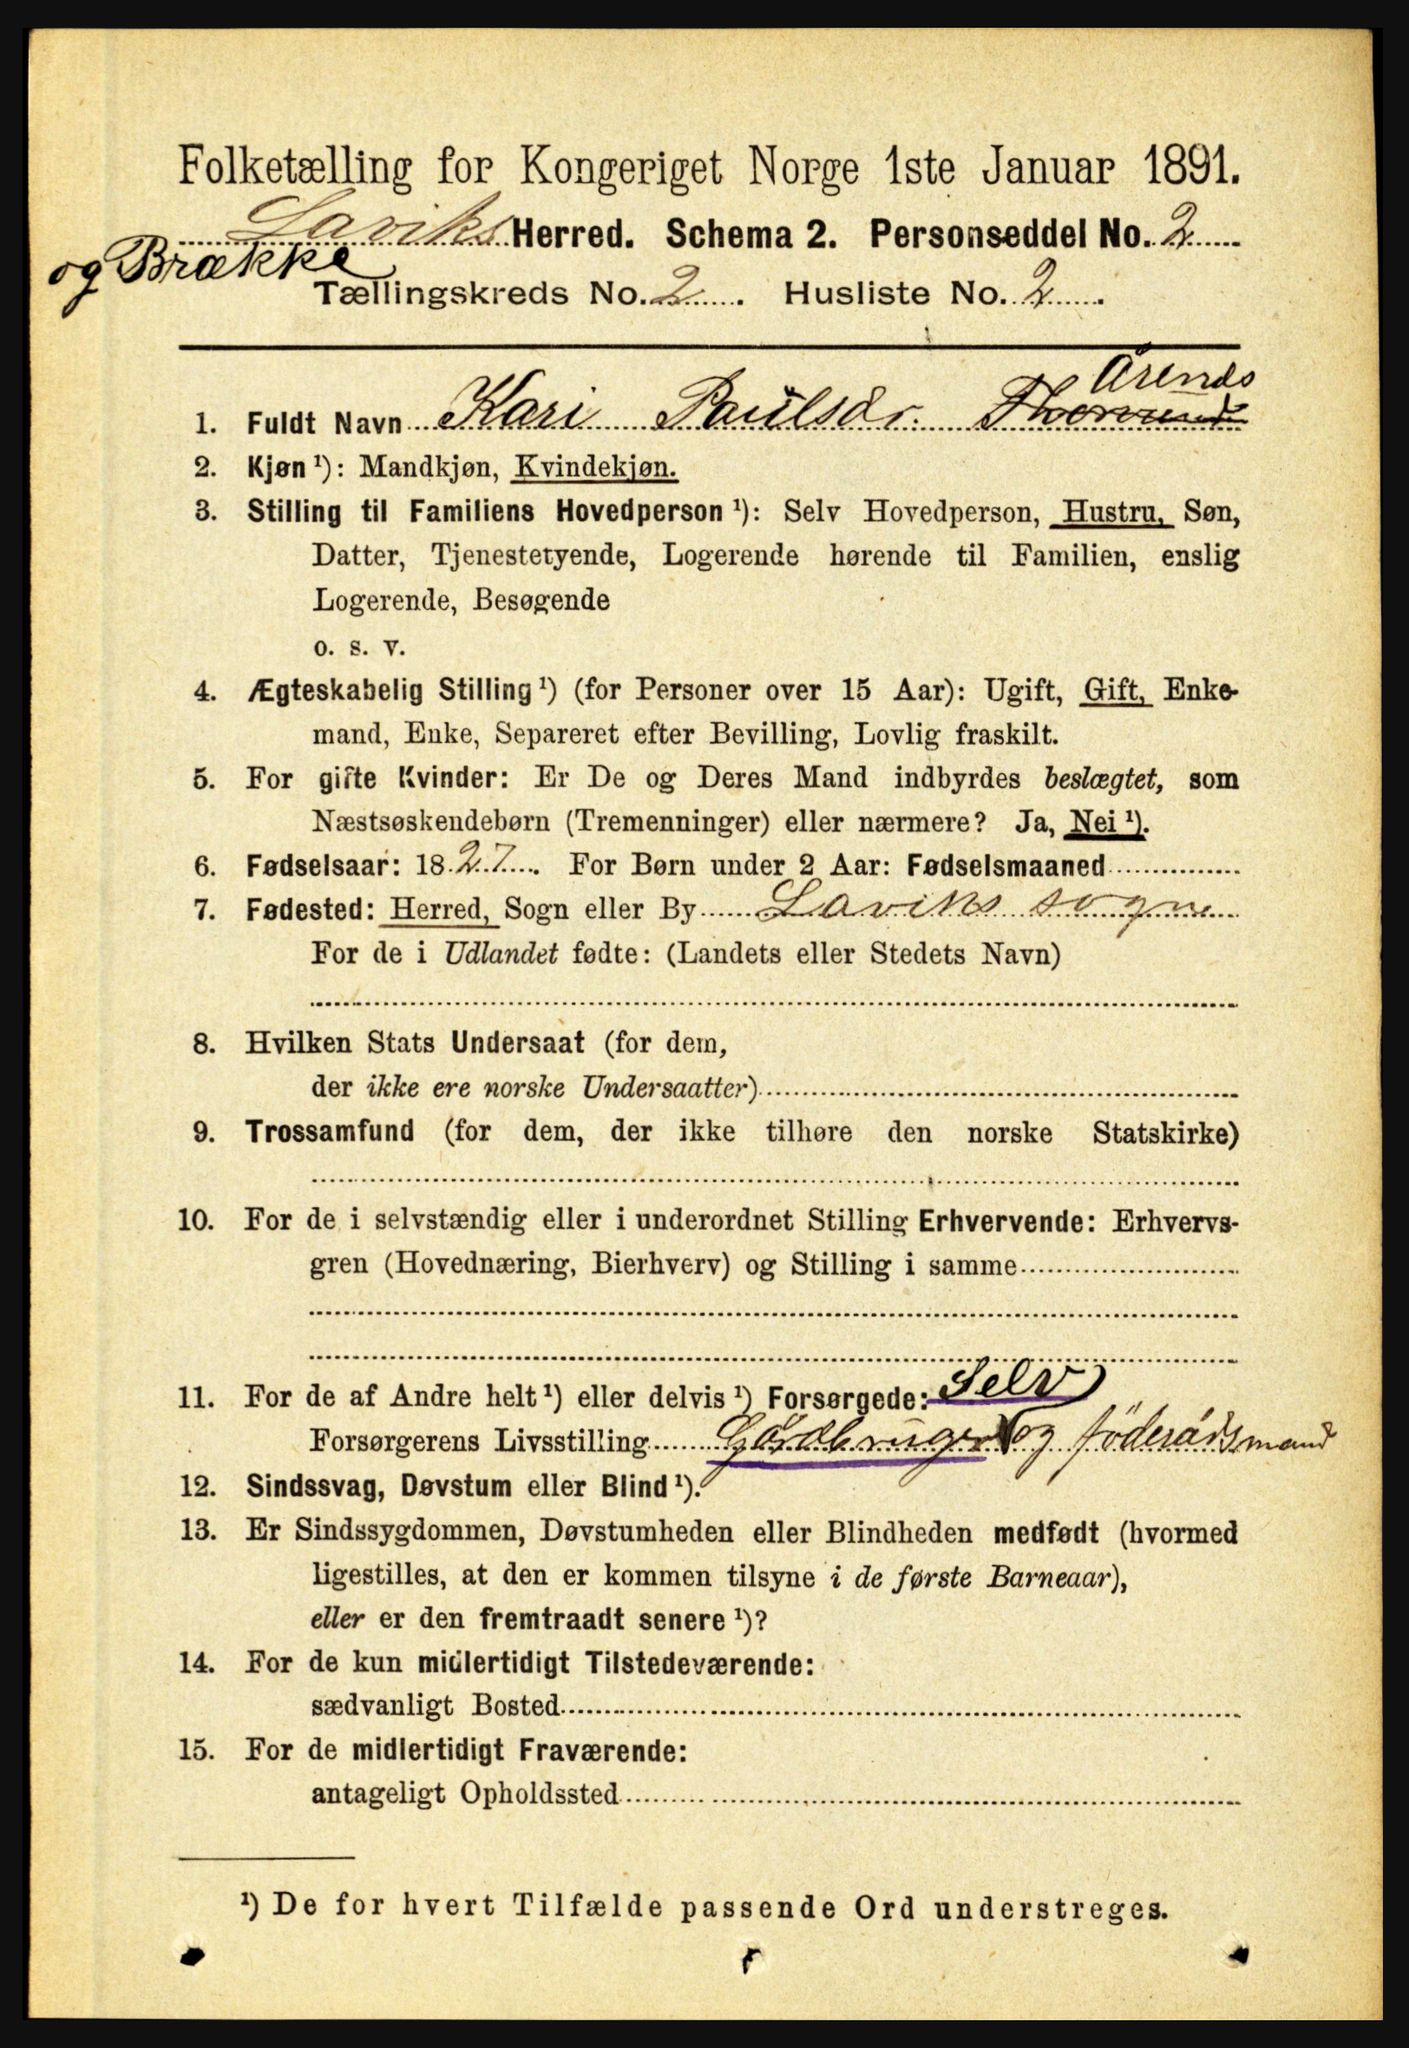 Folketælling for Kongeriget Norge 1ste Januar 1891.
Laviks Herred. Schema 2. Personseddel No. 2
og Brække
Tællingskreds No. 2. Husliste No. 2.
Årends
1. Fuldt Navn Kari Paulsdr.
2. Kjøn ¹): Mandkjøn, Kvindekjøn.
3. Stilling til Familiens Hovedperson ¹): Selv Hovedperson, Hustru, Søn,
Datter, Tjenestetyende, Logerende hørende til Familien, enslig
Logerende, Besøgende
o. s. v.
4. Ægteskabelig Stilling ¹) (for Personer over 15 Aar): Ugift, Gift, Enke-
mand, Enke, Separeret efter Bevilling, Lovlig fraskilt.
5. For gifte Kvinder: Er De og Deres Mand indbyrdes beslægtet, som
Næstsøskendebørn (Tremenninger) eller nærmere? Ja, Nei ¹).
6. Fødselsaar: 1827. For Børn under 2 Aar: Fødselsmaaned
7. Fødested: Herred, Sogn eller By Laviks sogn
For de i Udlandet fødte: (Landets eller Stedets Navn)
8. Hvilken Stats Undersaat (for dem,
der ikke ere norske Undersaatter)
9. Trossamfund (for dem, der ikke tilhøre den norske Statskirke)
10. For de i selvstændig eller i underordnet Stilling Erhvervende: Erhvervs-
gren (Hovednæring, Bierhverv) og Stilling i samme
11. For de af Andre helt ¹) eller delvis ¹) Forsørgede: Selv
Forsørgerens Livsstilling Gårdbruger og föderådsmand
12. Sindssvag, Døvstum eller Blind ¹).
13. Er Sindssygdommen, Døvstumheden eller Blindheden medfødt (hvormed
ligestilles, at den er kommen tilsyne i de første Barneaar),
eller er den fremtraadt senere ¹)?
14. For de kun midlertidigt Tilstedeværende:
sædvanligt Bosted
15. For de midlertidigt Fraværende:
antageligt Opholdssted
¹) De for hvert Tilfælde passende Ord understreges.